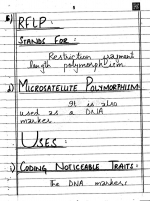 RFLP:
STANDS FOR:
Restriction fragment
length polymorphism
MICROSATELLITE POLYMORPHISM:
It is also
used as a DNA
marker
USES:
i) CODING NOTICEABLE TRAITS:
The DNA markers